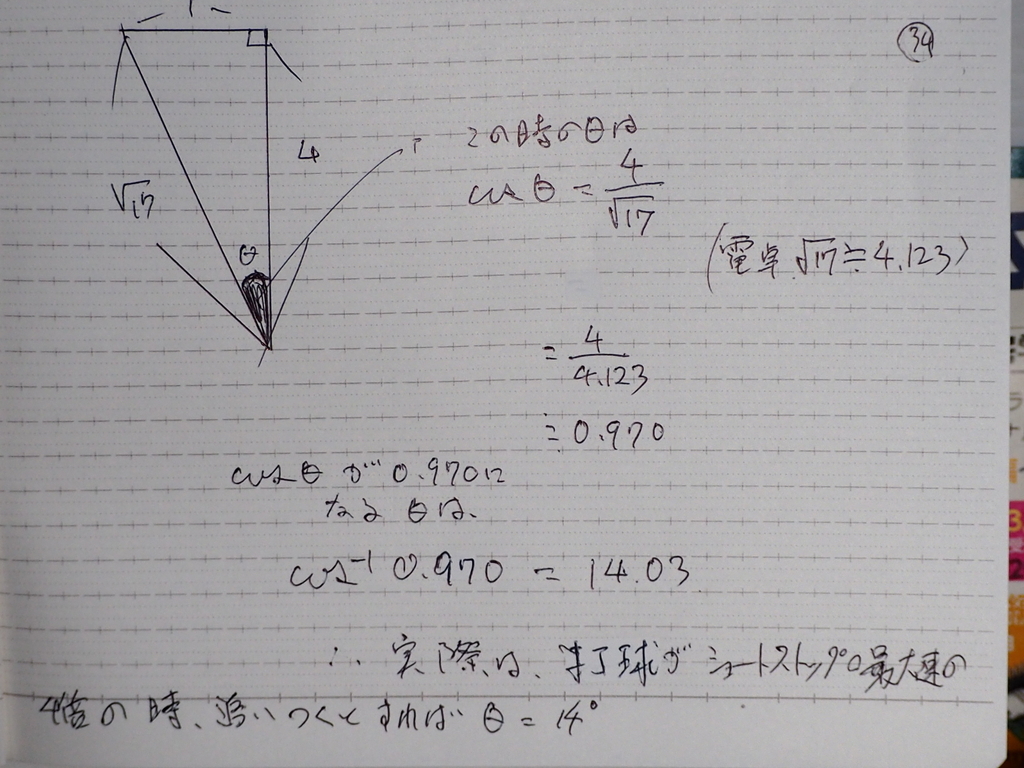 34
1
4
√17
θ
この時のθは
cosθ = 4/√17
(電卓 √17≒4.123)
= 4/4.123
≒ 0.970
cosθが0.970に
なるθは、
cos⁻¹ 0.970 = 14.03
∴ 実際は、打球がショートストップの最大速の
4倍の時、追いつくとすれば θ = 14°